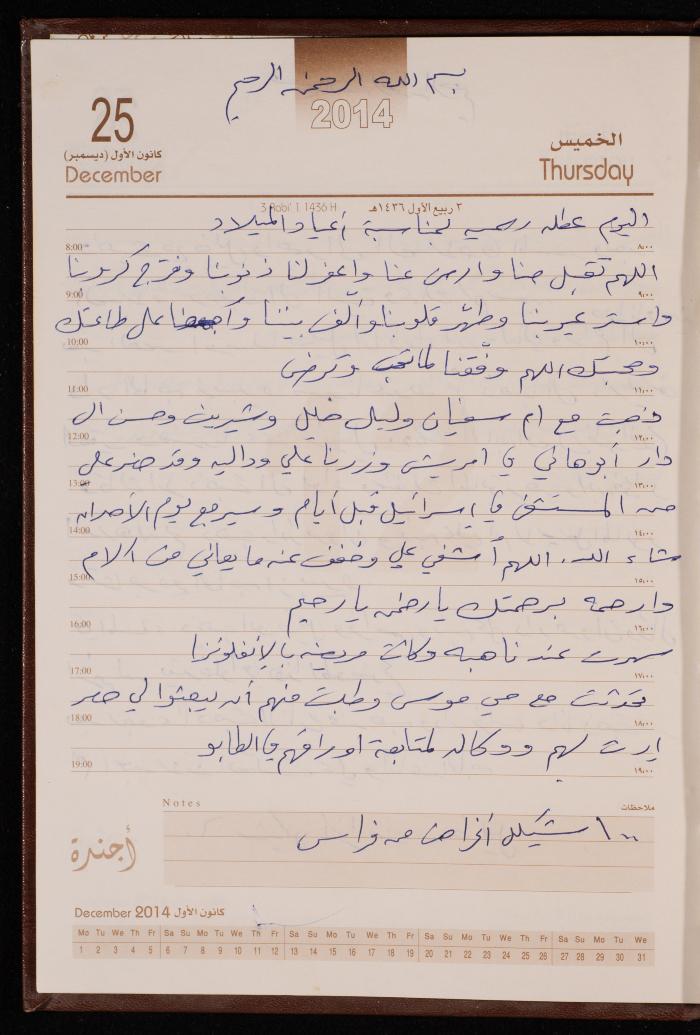 بسم الله الرحمن الرحيم
2014
25
كانون الأول (ديسمبر)
December
الخميس
Thursday
3 Rabi' I 1436 H
٣ ربيع الأول ١٤٣٦هـ
اليوم عطله رسميه بمناسبة أعياد الميلاد
8:00 ٨:٠٠
اللهم تقبل منا وارض عنا واغفر لنا ذنوبنا وفرّج كروبنا
9:00 ٩:٠٠
واستر عيوبنا وطهّر قلوبنا وألّف بيننا على طاعتك
10:00 ١٠:٠٠
ومحبتك اللهم وفّقنا لما تحب وترضى
11:00 ١١:٠٠
ذهبت مع ام سفيان وليلى خليل وشيرين وحسن ال
12:00 ١٢:٠٠
دار أبو هاني في وزرنا علي وداليه وقد حضر علي
13:00 ١٣:٠٠
من المستشفى في إسرائيل قبل أيام وسيرجع يوم الأحد ان
14:00 ١٤:٠٠
شاء الله. اللهم أشفي علي وخفف عنه ما يعاني من الام
15:00 ١٥:٠٠
وارحمه برحمتك يا رحمن يا رحيم
16:00 ١٦:٠٠
سهرت عند ناهبه وكانت مريضه بالإنفلونزا
17:00 ١٧:٠٠
تحدثت مع مي موسى وطلبت منهم أن يبعثوا لي حصر
18:00 ١٨:٠٠
إرث لهم ووكاله لمتابعة اوراقهم في الطابو
19:00 ١٩:٠٠
Notes ملاحظات
١٠٠ شيكل أغراض من فراس
أجندة
December 2014 كانون الأول
Mo Tu We Th Fr Sa Su Mo Tu We Th Fr Sa Su Mo Tu We Th Fr Sa Su Mo Tu We Th Fr Sa Su Mo Tu We
1 2 3 4 5 6 7 8 9 10 11 12 13 14 15 16 17 18 19 20 21 22 23 24 25 26 27 28 29 30 31